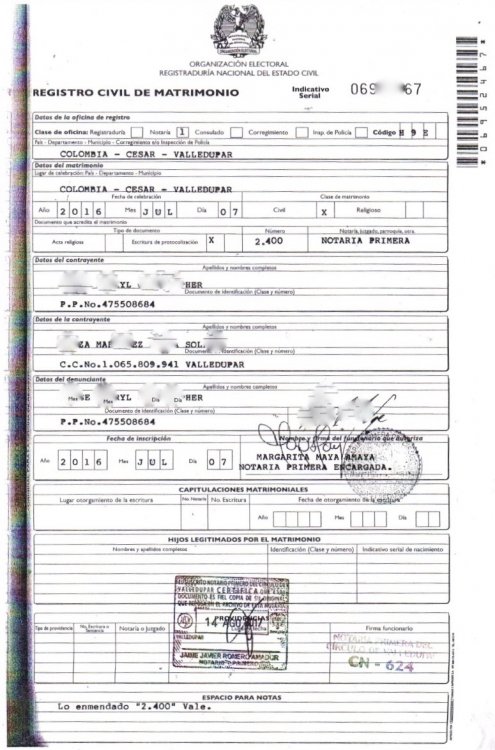 ORGANIZACIÓN ELECTORAL
REGISTRADURÍA NACIONAL DEL ESTADO CIVIL
REGISTRO CIVIL DE MATRIMONIO
Indicativo Serial 069 67
Datos de la oficina de registro
Clase de oficina: Registraduría Notaría 1 Consulado Corregimiento Insp. de Policía Código H 9 E
País - Departamento - Municipio - Corregimiento y/o Inspección de Policía
COLOMBIA - CESAR - VALLEDUPAR
Datos del matrimonio
Lugar de celebración: País - Departamento - Municipio
COLOMBIA - CESAR - VALLEDUPAR
Fecha de celebración Clase de matrimonio
Año 2 0 1 6 Mes J U L Día 0 7 Civil X Religioso
Documento que acredita el matrimonio
Tipo de documento Número Notaría, juzgado, parroquia, otra.
Acta religiosa Escritura de protocolización X 2.400 NOTARIA PRIMERA
Datos del contrayente
Apellidos y nombres completos
YL HER
Documento de Identificación (Clase y número)
P.P.No.475508684
Datos de la contrayente
Apellidos y nombres completos
ZA MA EZ SOL
Identificación (Clase y número)
C.C.No.1.065.809.941 VALLEDUPAR
Datos del denunciante
Apellidos y nombres completos
E RYL HER
Documento de Identificación (Clase y número)
P.P.No.475508684
Fecha de inscripción Nombre y firma del funcionario que autoriza
Año 2 0 1 6 Mes J U L Día 0 7
MARGARITA MAYA AMAYA
NOTARIA PRIMERA ENCARGADA.
CAPITULACIONES MATRIMONIALES
Lugar otorgamiento de la escritura No. Notaría No. Escritura Fecha de otorgamiento de la escritura
Año Mes Día
HIJOS LEGITIMADOS POR EL MATRIMONIO
Nombres y apellidos completos Identificación (Clase y número) Indicativo serial de nacimiento
VALLEDUPAR CERTIFICA
DOCUMENTO ES FIEL COPIA DE
PROVIDENCIAS
14 AGO 2017
VALLEDUPAR
JAIME JAVIER ROMERO AMADOR
NOTARIO PRIMERO
Tipo de providencia No. Escritura o Sentencia Notaría o Juzgado Firma funcionario
NOTARIA PRIMERA DEL
CIRCULO DE VALLEDUPAR
CN - 624
ESPACIO PARA NOTAS
Lo enmendado "2.400" Vale.